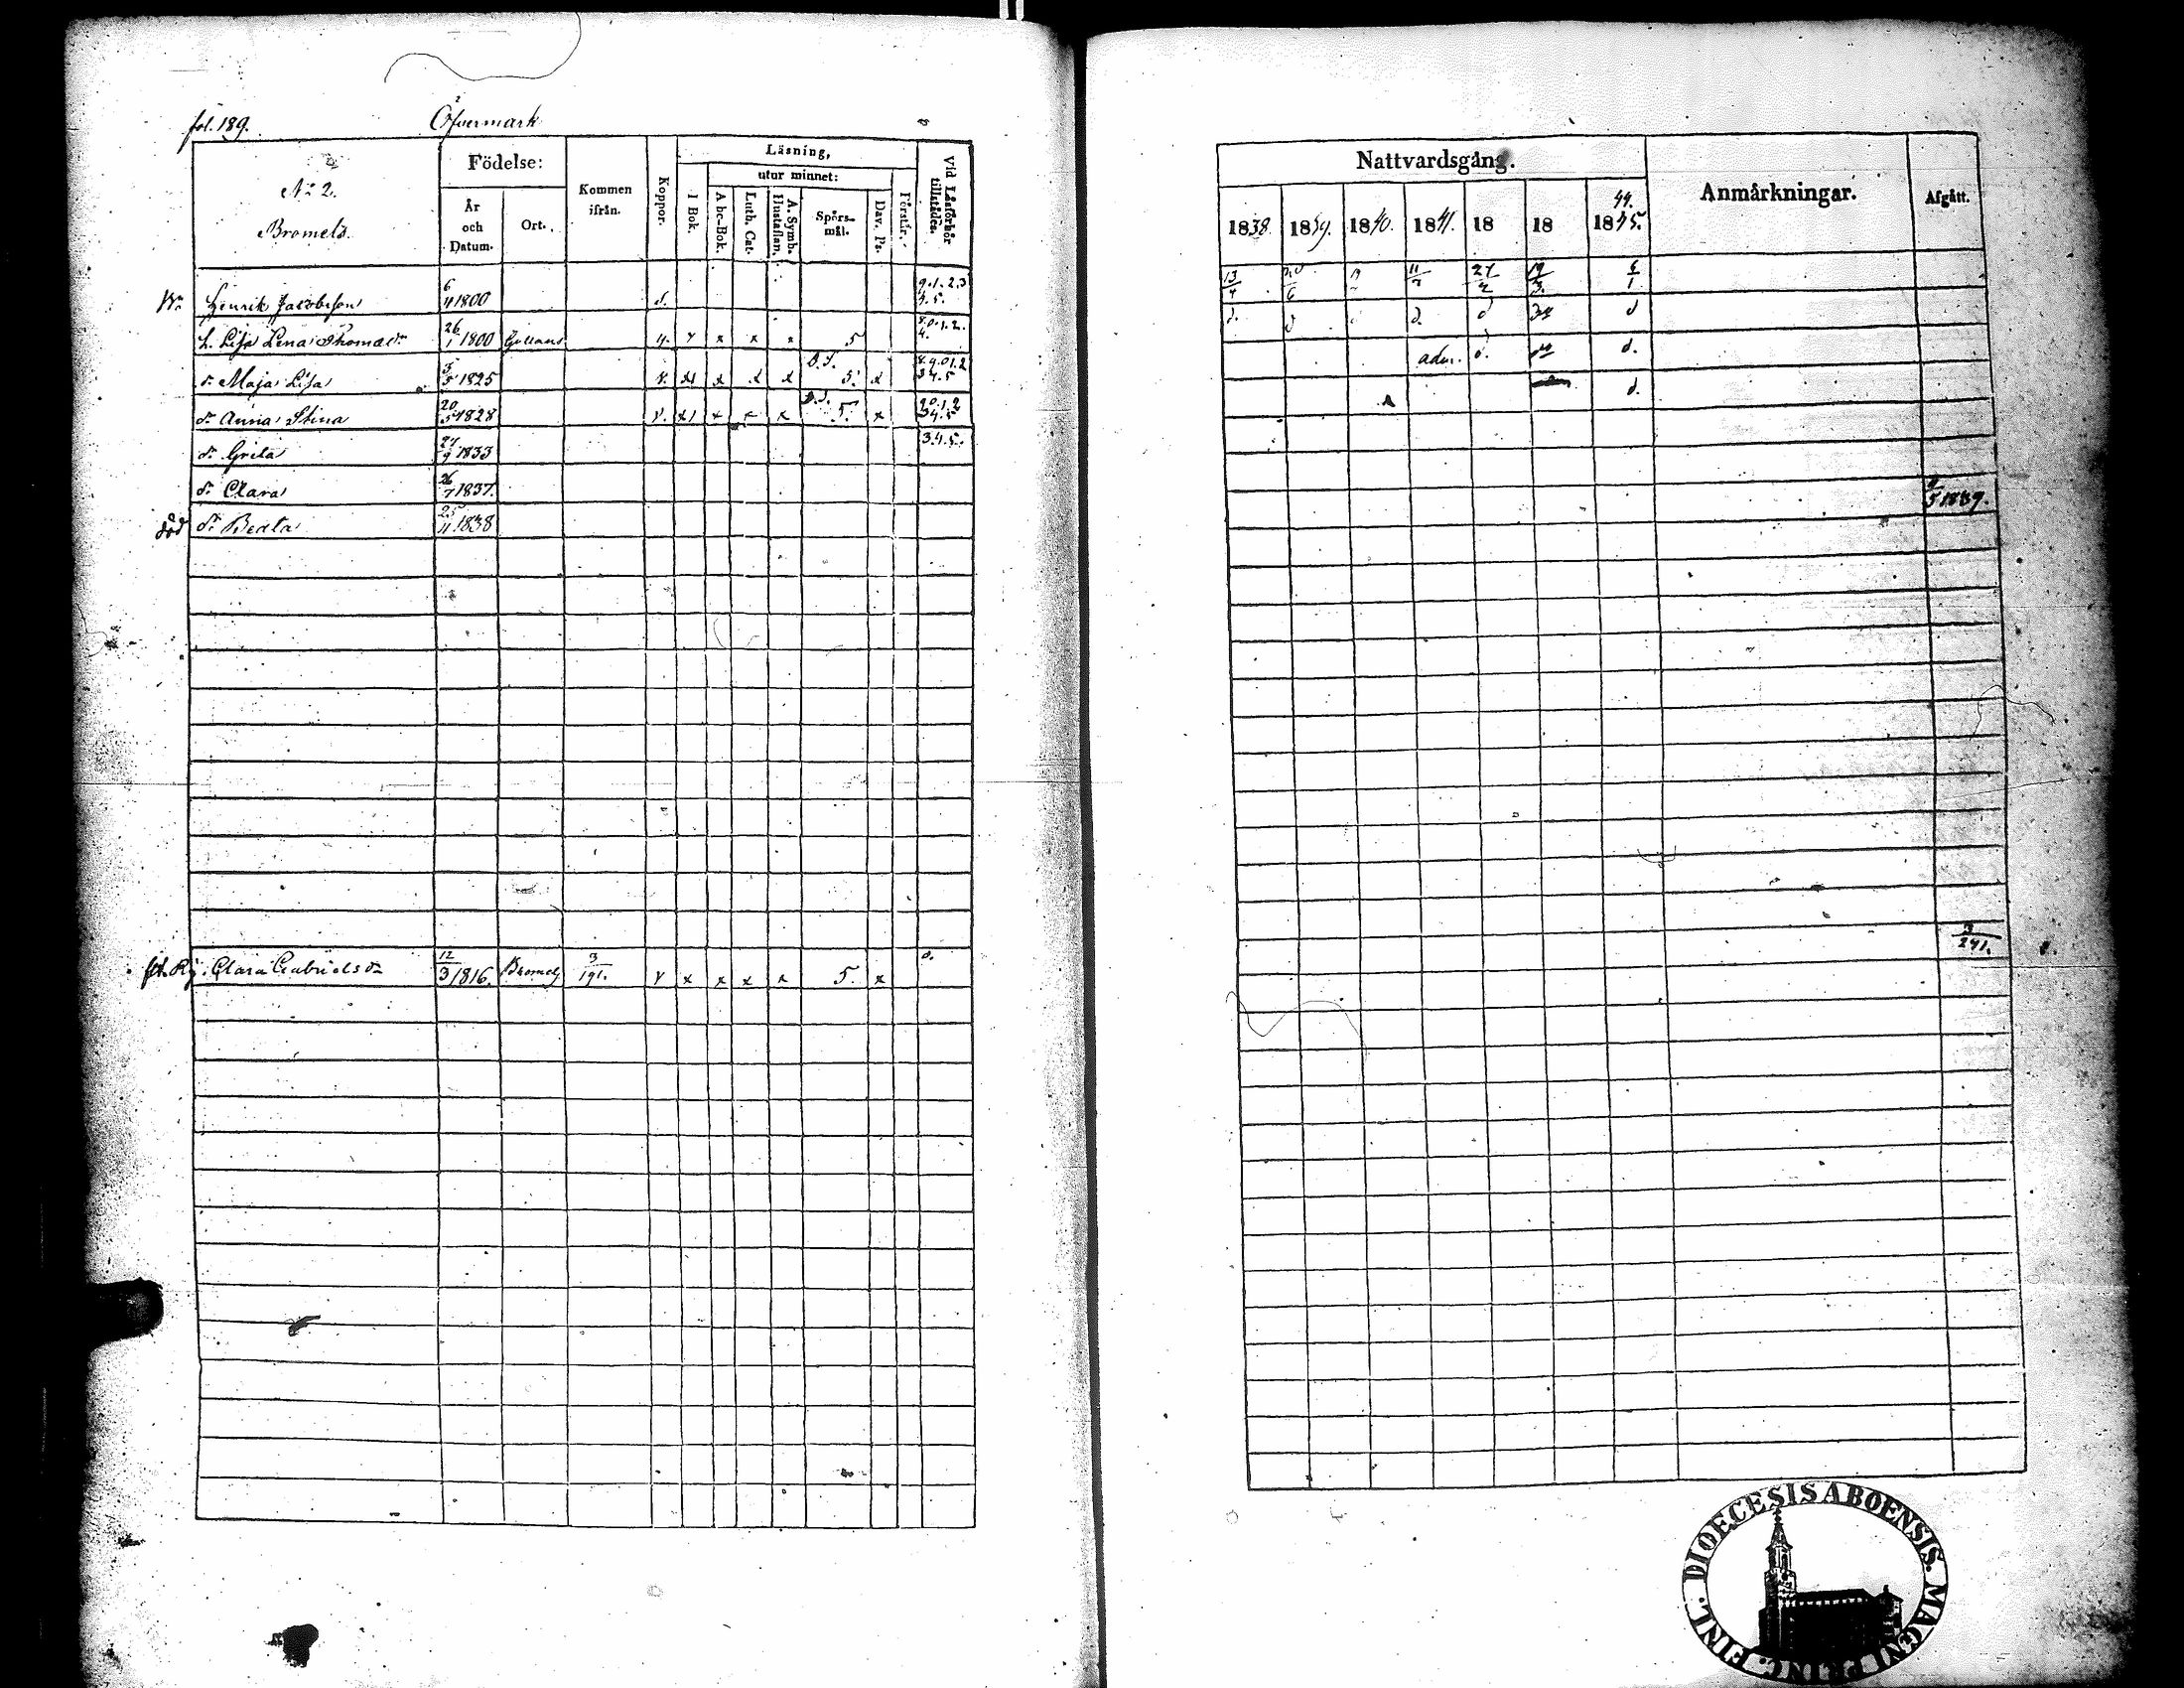 fol. 189. Öfvermark
No 2.
Bromels.
Födelse:
År
och
Datum.
Ort.
Kommen
ifrån.
Koppor.
Läsning,
I Bok.
utur minnet:
Abc-Bok.
Luth. Cat.
A. Symb.
Hustaflan.
Spörs-
mål.
Dav. Ps.
Förstår.
Vid Läsförhör
tillstädes.
Henrik Jacobsson 6/4 1800 9.1.2.3
4.5.
h. Lisa Lena Thomasdr 26/1 1800 x x x 5 8.0.1.2.
4.
dr Maja Lisa 5/5 1825 x x x 5. x 8.9.0.1.2
3.4.5
dr Anna Stina 20/5 1828 x x x 5. x 9.0.1.2
3.4.5
dr Greta 27/9 1833 3.4.5.
dr Clara 26/7 1837.
död dr Beata 25/11 1838
Clara Gabrielsdr 12/3 1816. Bromels 3/191. x x x x 5. x
Nattvardsgång.
1838. 1839. 1840. 1841. 18 18 44.
1845.
Anmärkningar.
Afgått.
13/4 11/7 27/2 19/3 6/1
d. d d. d d
adm. d. d.
d.
5 1839.
3/241.
DIOECESIS ABOENSIS. MAGNI PRINC. FINL.